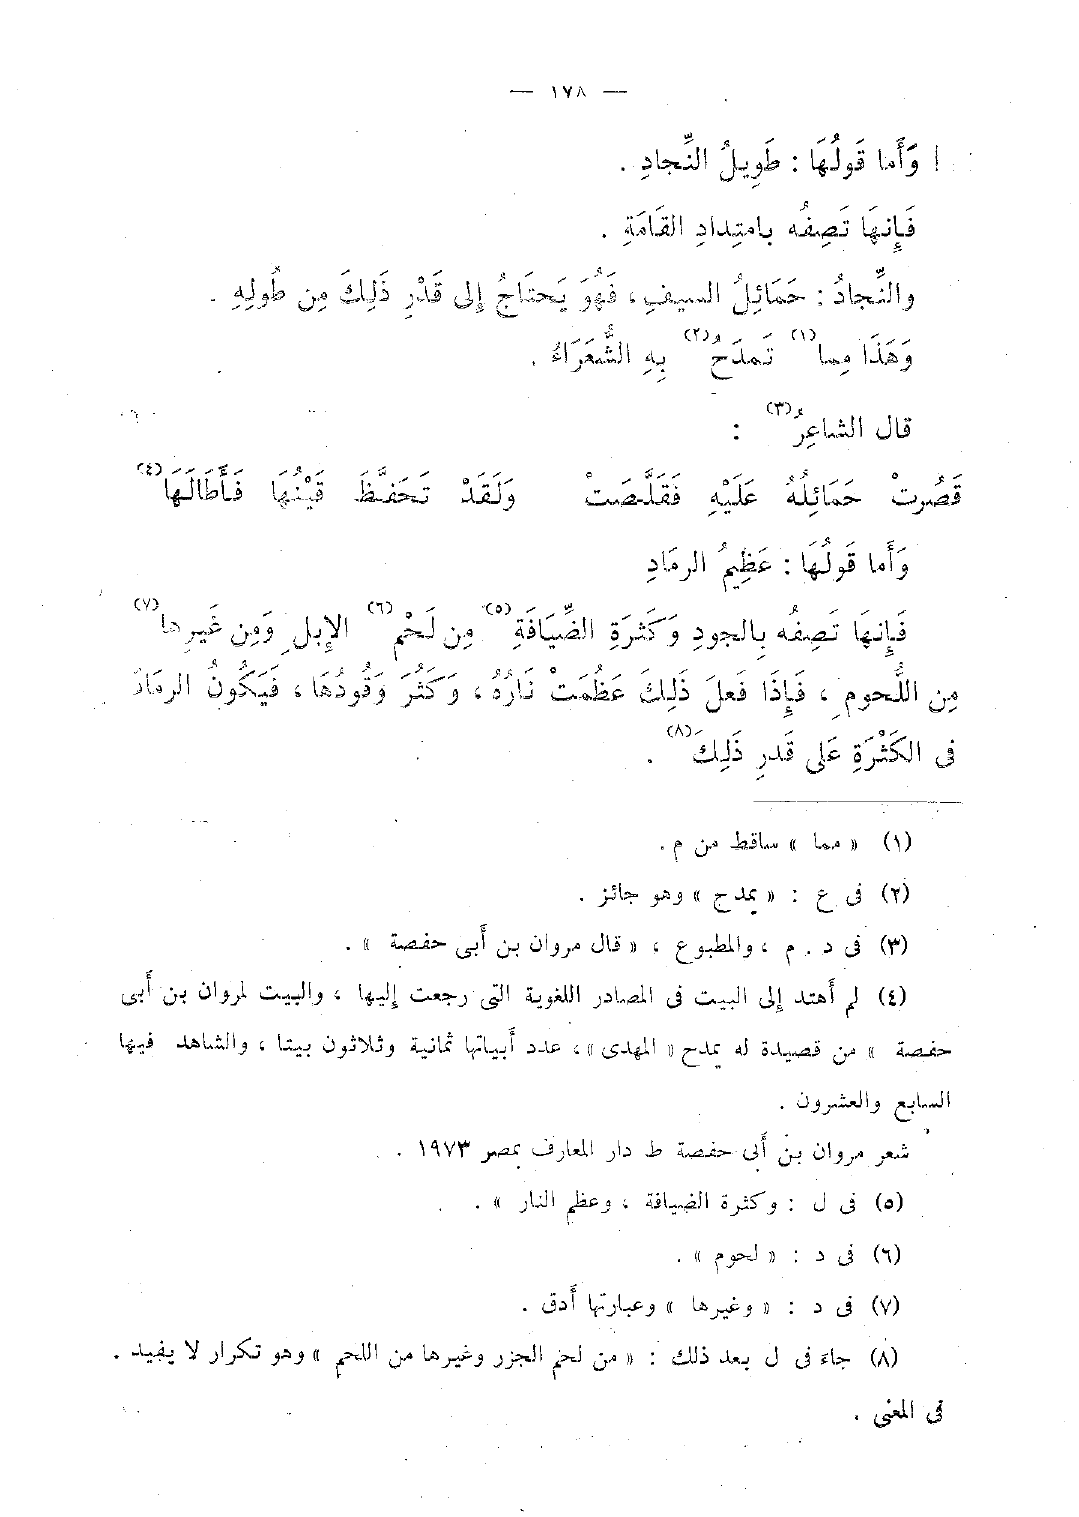 — ١٧٨ —
وَأَما قَولُهَا : طَوِيلُ النِّجادِ .
فَإِنهَا تَصِفُه بامتِدادِ القَامَةِ .
والنِّجادُ : حَمَائِلُ السيفِ ، فَهُوَ يَحتَاجُ إِلى قَدْرِ ذَلِكَ مِن طُولِهِ .
وَهَذَا مِما (١) تَمدَحُ (٢) بِهِ الشُّعَرَاءُ .
قال الشاعِرُ (٣) :
قَصُرتْ حَمَائِلُهُ عَلَيْهِ فَقَلَّصَتْ وَلَقَدْ تَحَفَّظَ قَيْنُهَا فَأَطَالَهَا (٤)
وَأَما قَولُهَا : عَظِيمُ الرمَادِ
فَإِنهَا تَصِفُه بِالجودِ وَكَثرَةِ الضِّيَافَةِ (٥) مِن لَحْمِ (٦) الإِبلِ وَمِن غَيرِها (٧)
مِن اللُّحومِ ، فَإِذَا فَعلَ ذَلِكَ عَظُمَتْ نَارُهُ ، وَكَثُرَ وَقُودُهَا ، فَيَكُونُ الرمَادُ
فى الكَثْرَةِ عَلى قَدرِ ذَلِكَ (٨) .
(١) « مما » ساقط من م .
(٢) فى ع : « يمدح » وهو جائز .
(٣) فى د . م ، والمطبوع ، « قال مروان بن أَبى حفصة » .
(٤) لم أَهتد إِلى البيت فى المصادر اللغوية التى رجعت إِليها ، والبيت لمروان بن أَبى
حفصة » من قصيدة له يمدح « المهدى » ، عدد أَبياتها ثمانية وثلاثون بيتا ، والشاهد فيها
السابع والعشرون .
شعر مروان بن أَبى حفصة ط دار المعارف بمصر ١٩٧٣ .
(٥) فى ل : وكثرة الضيافة ، وعظم النار » .
(٦) فى د : « لحوم » .
(٧) فى د : « وغيرها » وعبارتها أَدق .
(٨) جاءَ فى ل بعد ذلك : « من لحم الجزر وغيرها من اللحم » وهو تكرار لا يفيد .
فى المعنى .